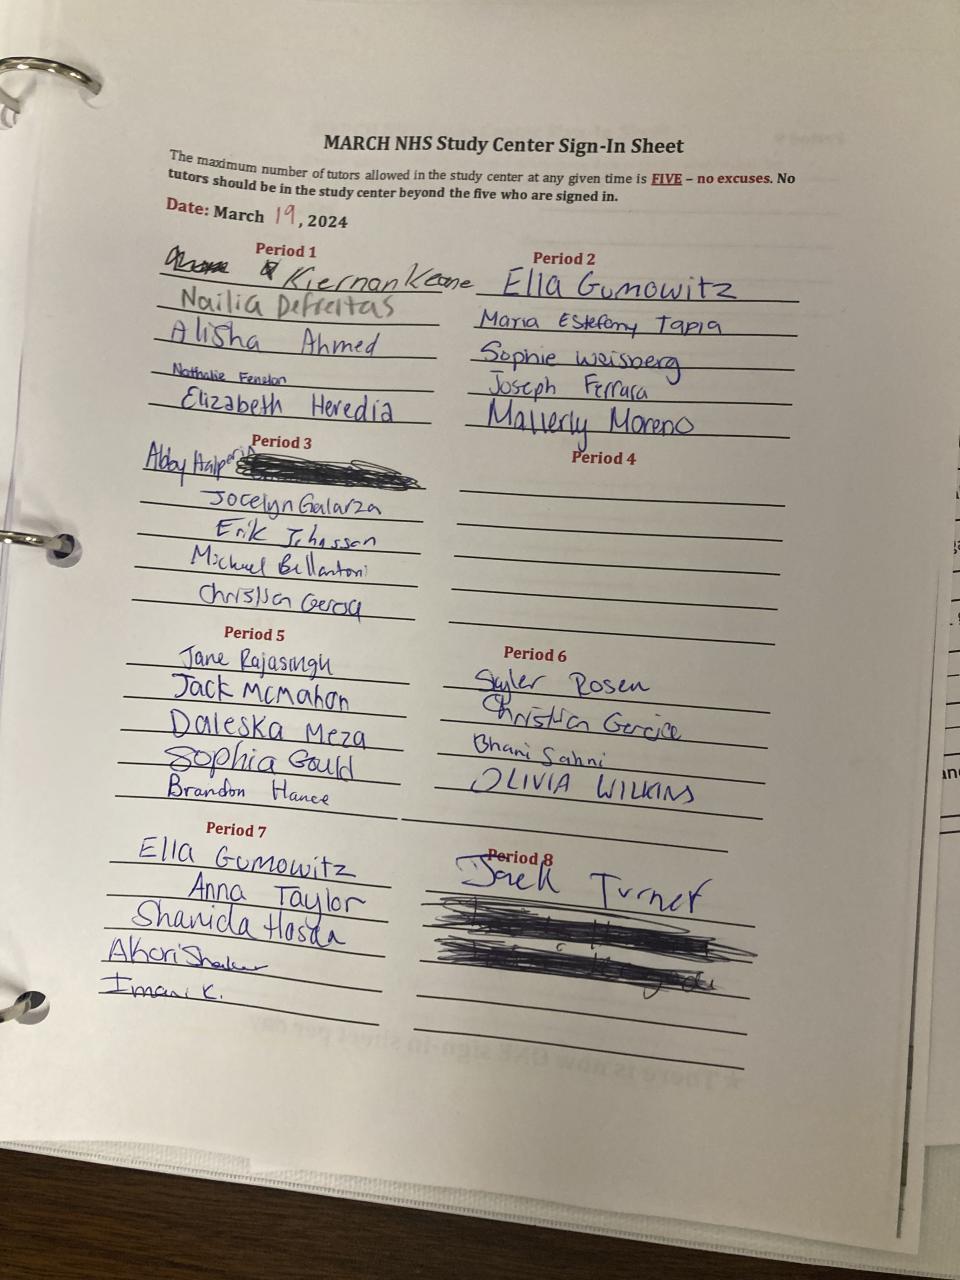 MARCH NHS Study Center Sign-In Sheet
The maximum number of tutors allowed in the study center at any given time is FIVE – no excuses. No
tutors should be in the study center beyond the five who are signed in.
Date: March 19, 2024
Period 1
Kiernan Keane
Nailia Defreitas
Alisha Ahmed
Nathalie Fenelon
Elizabeth Heredia
Period 2
Ella Gumowitz
Maria Estefany Tapia
Sophie Weisberg
Joseph Ferrara
Mallerly Moreno
Period 3
Abby Halperin
Jocelyn Galarza
Erik
Michael Bellantoni
Christian
Period 4
Period 5
Jane Rajasingh
Jack McMahon
Daleska Meza
Sophia Gould
Brandon Hance
Period 6
Skyler Rosen
Christian
Bhani Sahni
OLIVIA WILKINS
Period 7
Ella Gumowitz
Anna Taylor
Imani K.
Period 8
Jack Turner